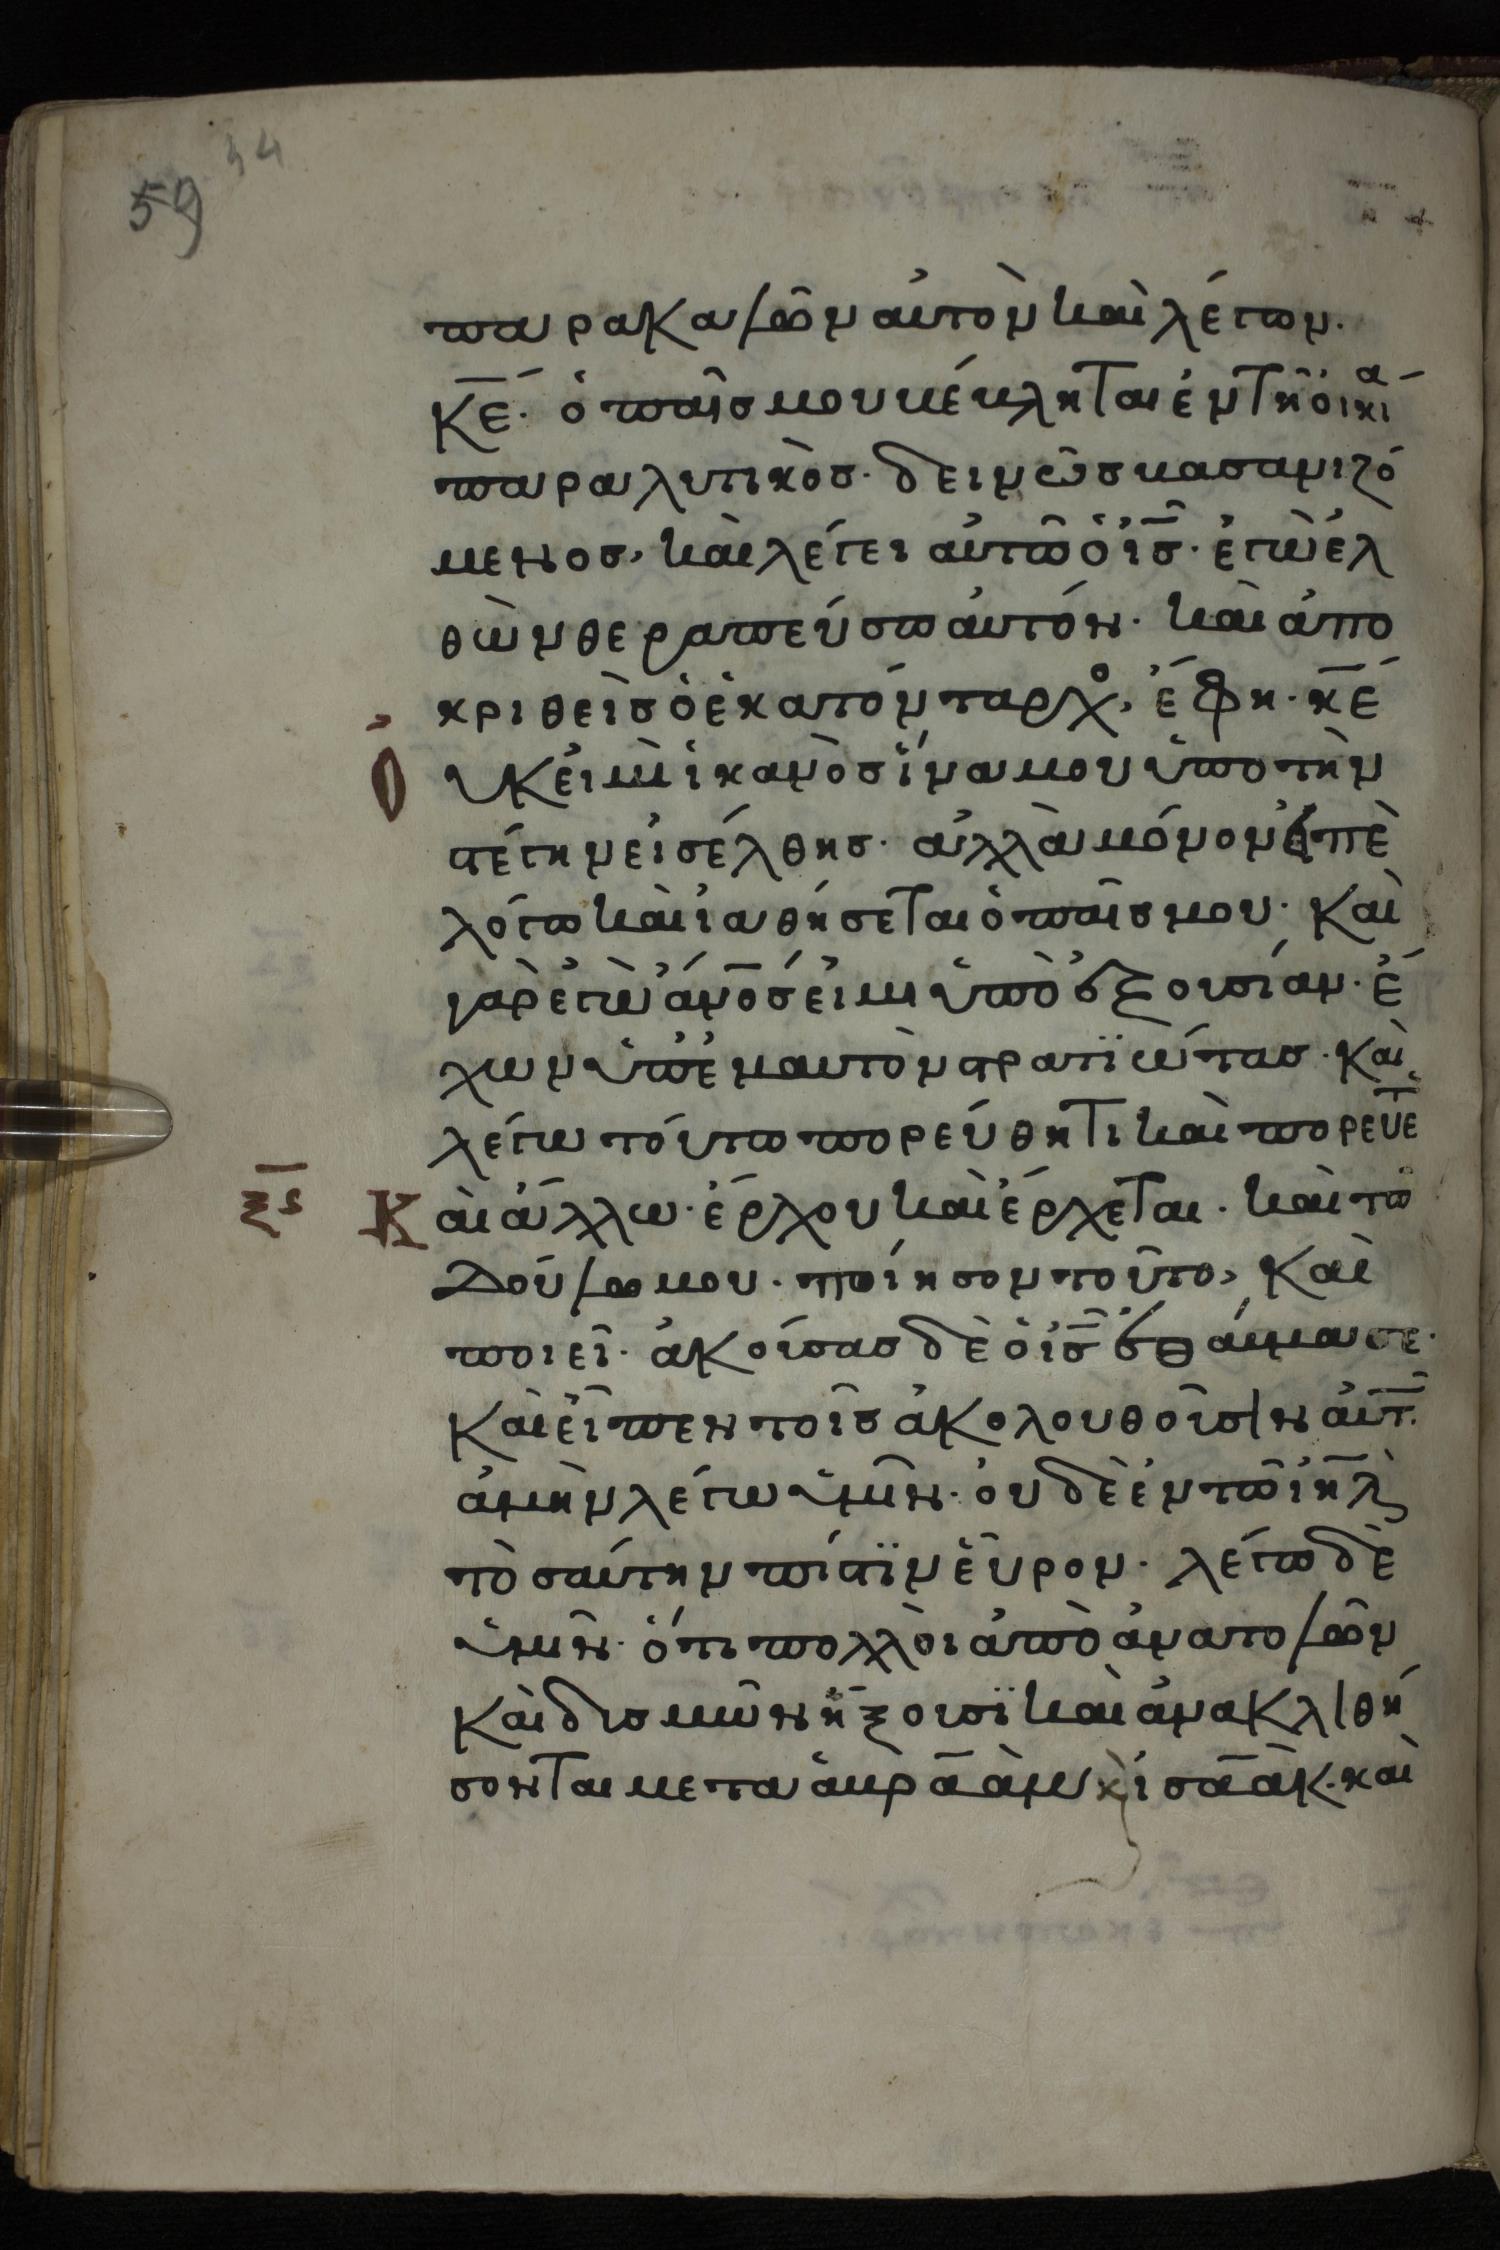 59 34
παρακαλῶν αὐτὸν καὶ λέγων.
κ̅ε̅. ὁ παῖσ μου κέκληται ἐν τῆ οἰκία
παραλυτικὸσ. δεινῶσ βασανιζό
μενοσ, καὶ λέγει αὐτῶ ὁ ι̅σ̅. ἐγὼ ἐλ
θὼν θεραπεύσω αὐτόν. καὶ ἀπο
κριθεὶσ ὁ ἑκατόνταρχο, ἔφη. κ̅ε̅
Ουκ εἰμὶ ἱκανὸσ ἵνα μου ὑπο τὴν
στέγην εἰσέλθησ. ἀλλὰ μόνον εἰπὲ
λόγω καὶ ἰαθήσεται ὁ παῖσ μου. καὶ
γὰρ ἐγὼ ἄν̅ο̅σ̅ εἰμι ὑπὸ ἐξουσίαν. ἔ
χων ὑπ' ἐμαυτὸν στρατϊώτασ. καὶ
λέγω τούτω πορεύθητι καὶ πορεύετ
ξ̅ϛ̅ Καὶ ἄλλω. ἔρχου καὶ ἔρχεται. καὶ τῶ
Δούλω μου. ποίησον τοῦτο, καὶ
ποιεῖ. ἀκούσασ δὲ ὁ ι̅σ̅ ἐθάυμασε.
καὶ εἶπεν τοῖσ ἀκολουθοῦσιν αὐτ.
ἀμὴν λέγω ὑμῖν. ουδὲ ἐν τῶ ι̅η̅λ̅
τὸσαύτην πίστϊν εὗρον. λέγω δὲ
ὑμῖν. ὅτι πολλὸι ἀπὸ ἀνατολῶν
καὶ δυσμῶν ἥξουσϊ καὶ ἀνακλιθή
σονται μετα ἀβρ̅α̅ὰμ κ̀ ἰσ̅α̅ὰκ. καὶ